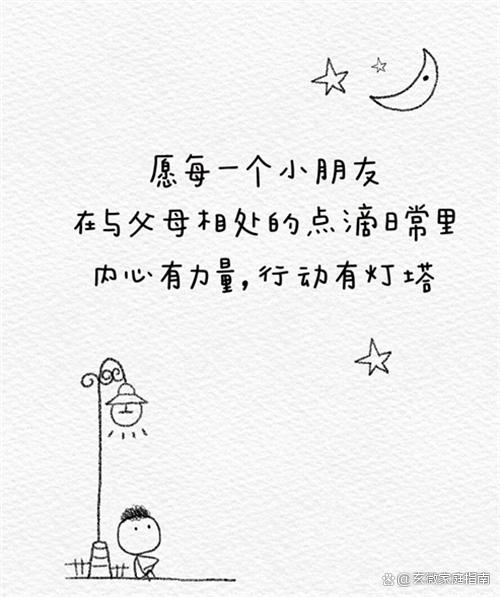 愿每一个小朋友
在与父母相处的点滴日常里
内心有力量，行动有灯塔
玄微家庭指南